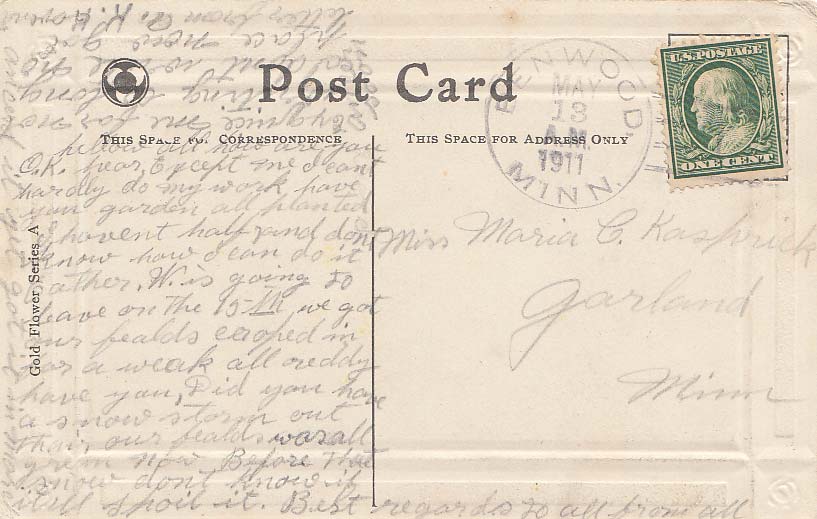 Post Card
THIS SPACE FOR CORRESPONDENCE
THIS SPACE FOR ADDRESS ONLY
BENWOOD
MAY
13
A.M.
1911
MINN.
U.S. POSTAGE
ONE CENT
Gold Flower Series A
Hellow all how are you
O.K. hear, Except me I cant
hardly do my work have
you garden all planted
I havent half and dont
know how I can do it
ather, W. is going to
leave on the 15-th, we got
our fealds croped in
for a weak all reddy
have you, Did you have
a snow storm out
thair our fealds was all
green now Before that
snow dont know if
itell spoil it. Best regards to all from all
Miss Maria C. Kasprick
Garland
Minn
letter from A. K.
place now